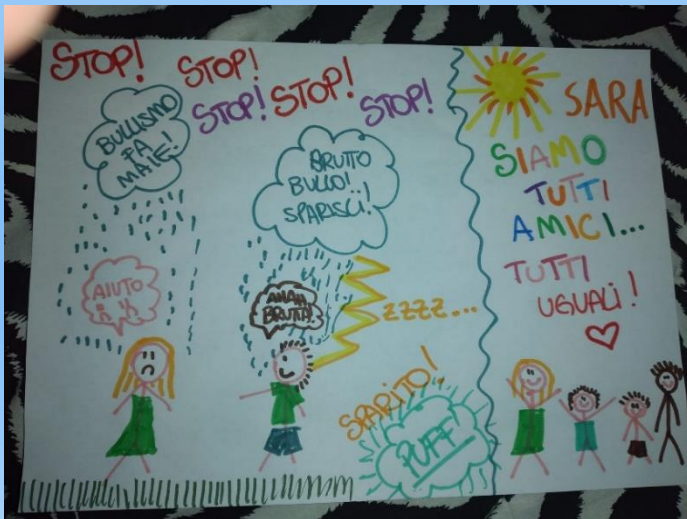 STOP!
STOP!
STOP!
STOP!
STOP!
BULLISMO
FA
MALE!
BRUTTO
BULLO!..
SPARISCI!
AIUTO
AHAH
BRUTTA!
ZZZZ...
SPARITO!
PUFF
SARA
SIAMO
TUTTI
AMICI...
TUTTI
UGUALI!